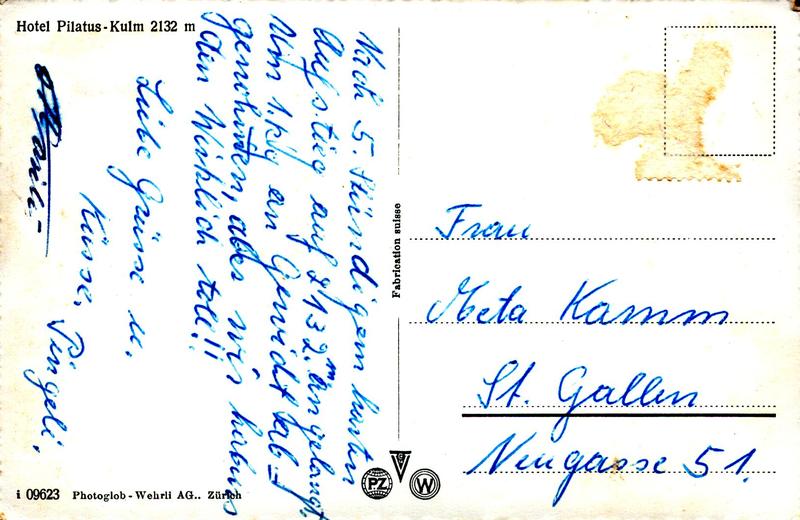 Hotel Pilatus-Kulm 2132 m
Nach 5. stündigem harten
Aufstieg auf 2132 m angelangt.
Um 1. kg an Gewicht ab=
genohmen, aber wir habens
den Wirklich toll!!
Liebe Grüsse u.
Küsse, Pingeli,
Fabrication suisse
Frau
Meta Kamm
St. Gallen
Neugasse 51.
i 09623 Photoglob-Wehrli AG., Zürich
PZ
W